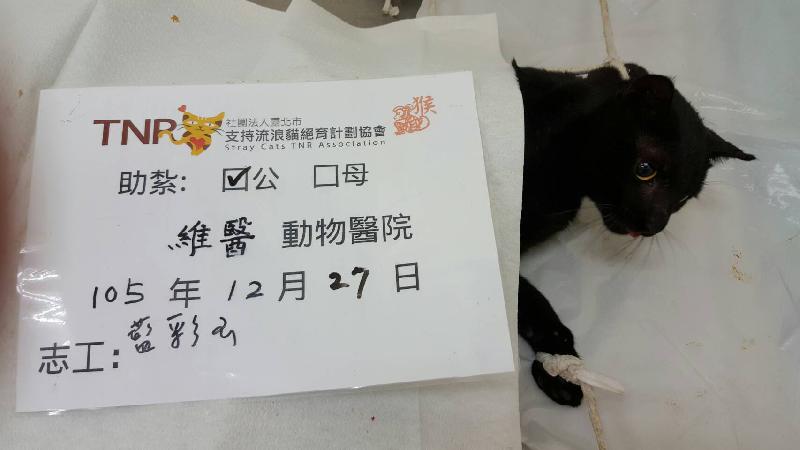 TNR 社團法人臺北市
支持流浪貓絕育計劃協會
Stray Cats TNR Association
猴
助紮: ☑公 ☐母
維醫 動物醫院
105 年 12 月 27 日
志工: 藍彩玉